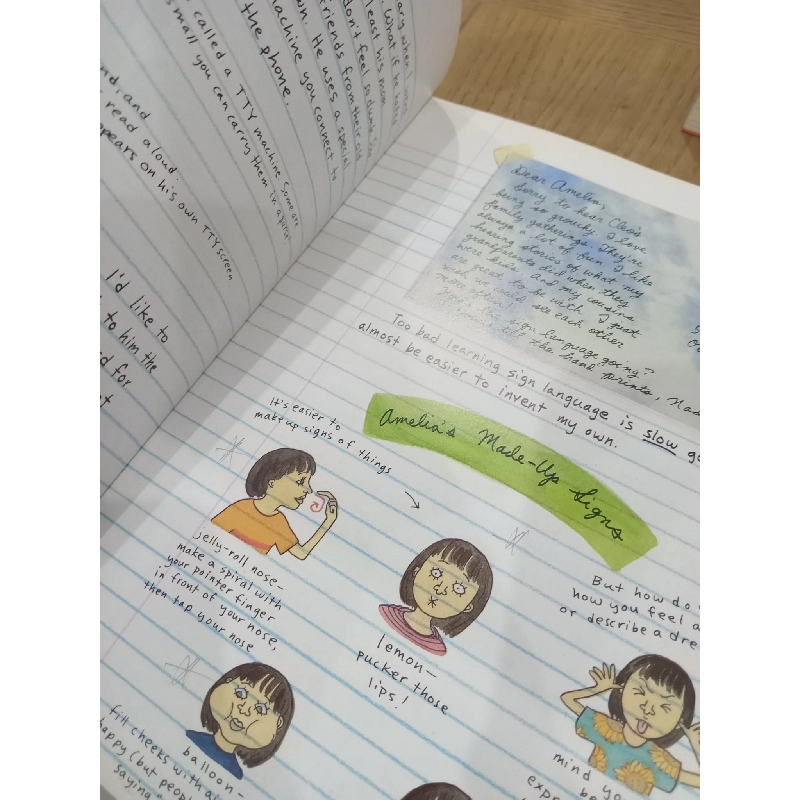 ary when I
What if he
least his mom
don't feel so dumb. Since
friends from their old
wn. He uses a special
machine you connect to
the phone.
called a TTY machine. Some are
small you can carry them in a purse
nd, and
read aloud.
pears on his own TTY screen
I'd like to
to him the
d for
Dear Amelia,
Sorry to hear Cleo's
being so grouchy. I love
family gatherings. They're
always a lot of fun. I like
hearing stories of what my
grandparents did when they
were kids. And my cousins
are great to be with. I just
wish we could see each other
more often.
sign language going?
the hand prints, Nad
Too bad learning sign language is slow go
almost be easier to invent my own.
Amelia's Made-Up Signs
It's easier to
make up signs of things
jelly-roll nose—
make a spiral with
your pointer finger
in front of your nose,
then tap your nose
lemon—
pucker those
lips!
But how do
how you feel a
or describe a dre
balloon—
fill cheeks with ai
happy (but peopl
saying
mind yo
be
expr